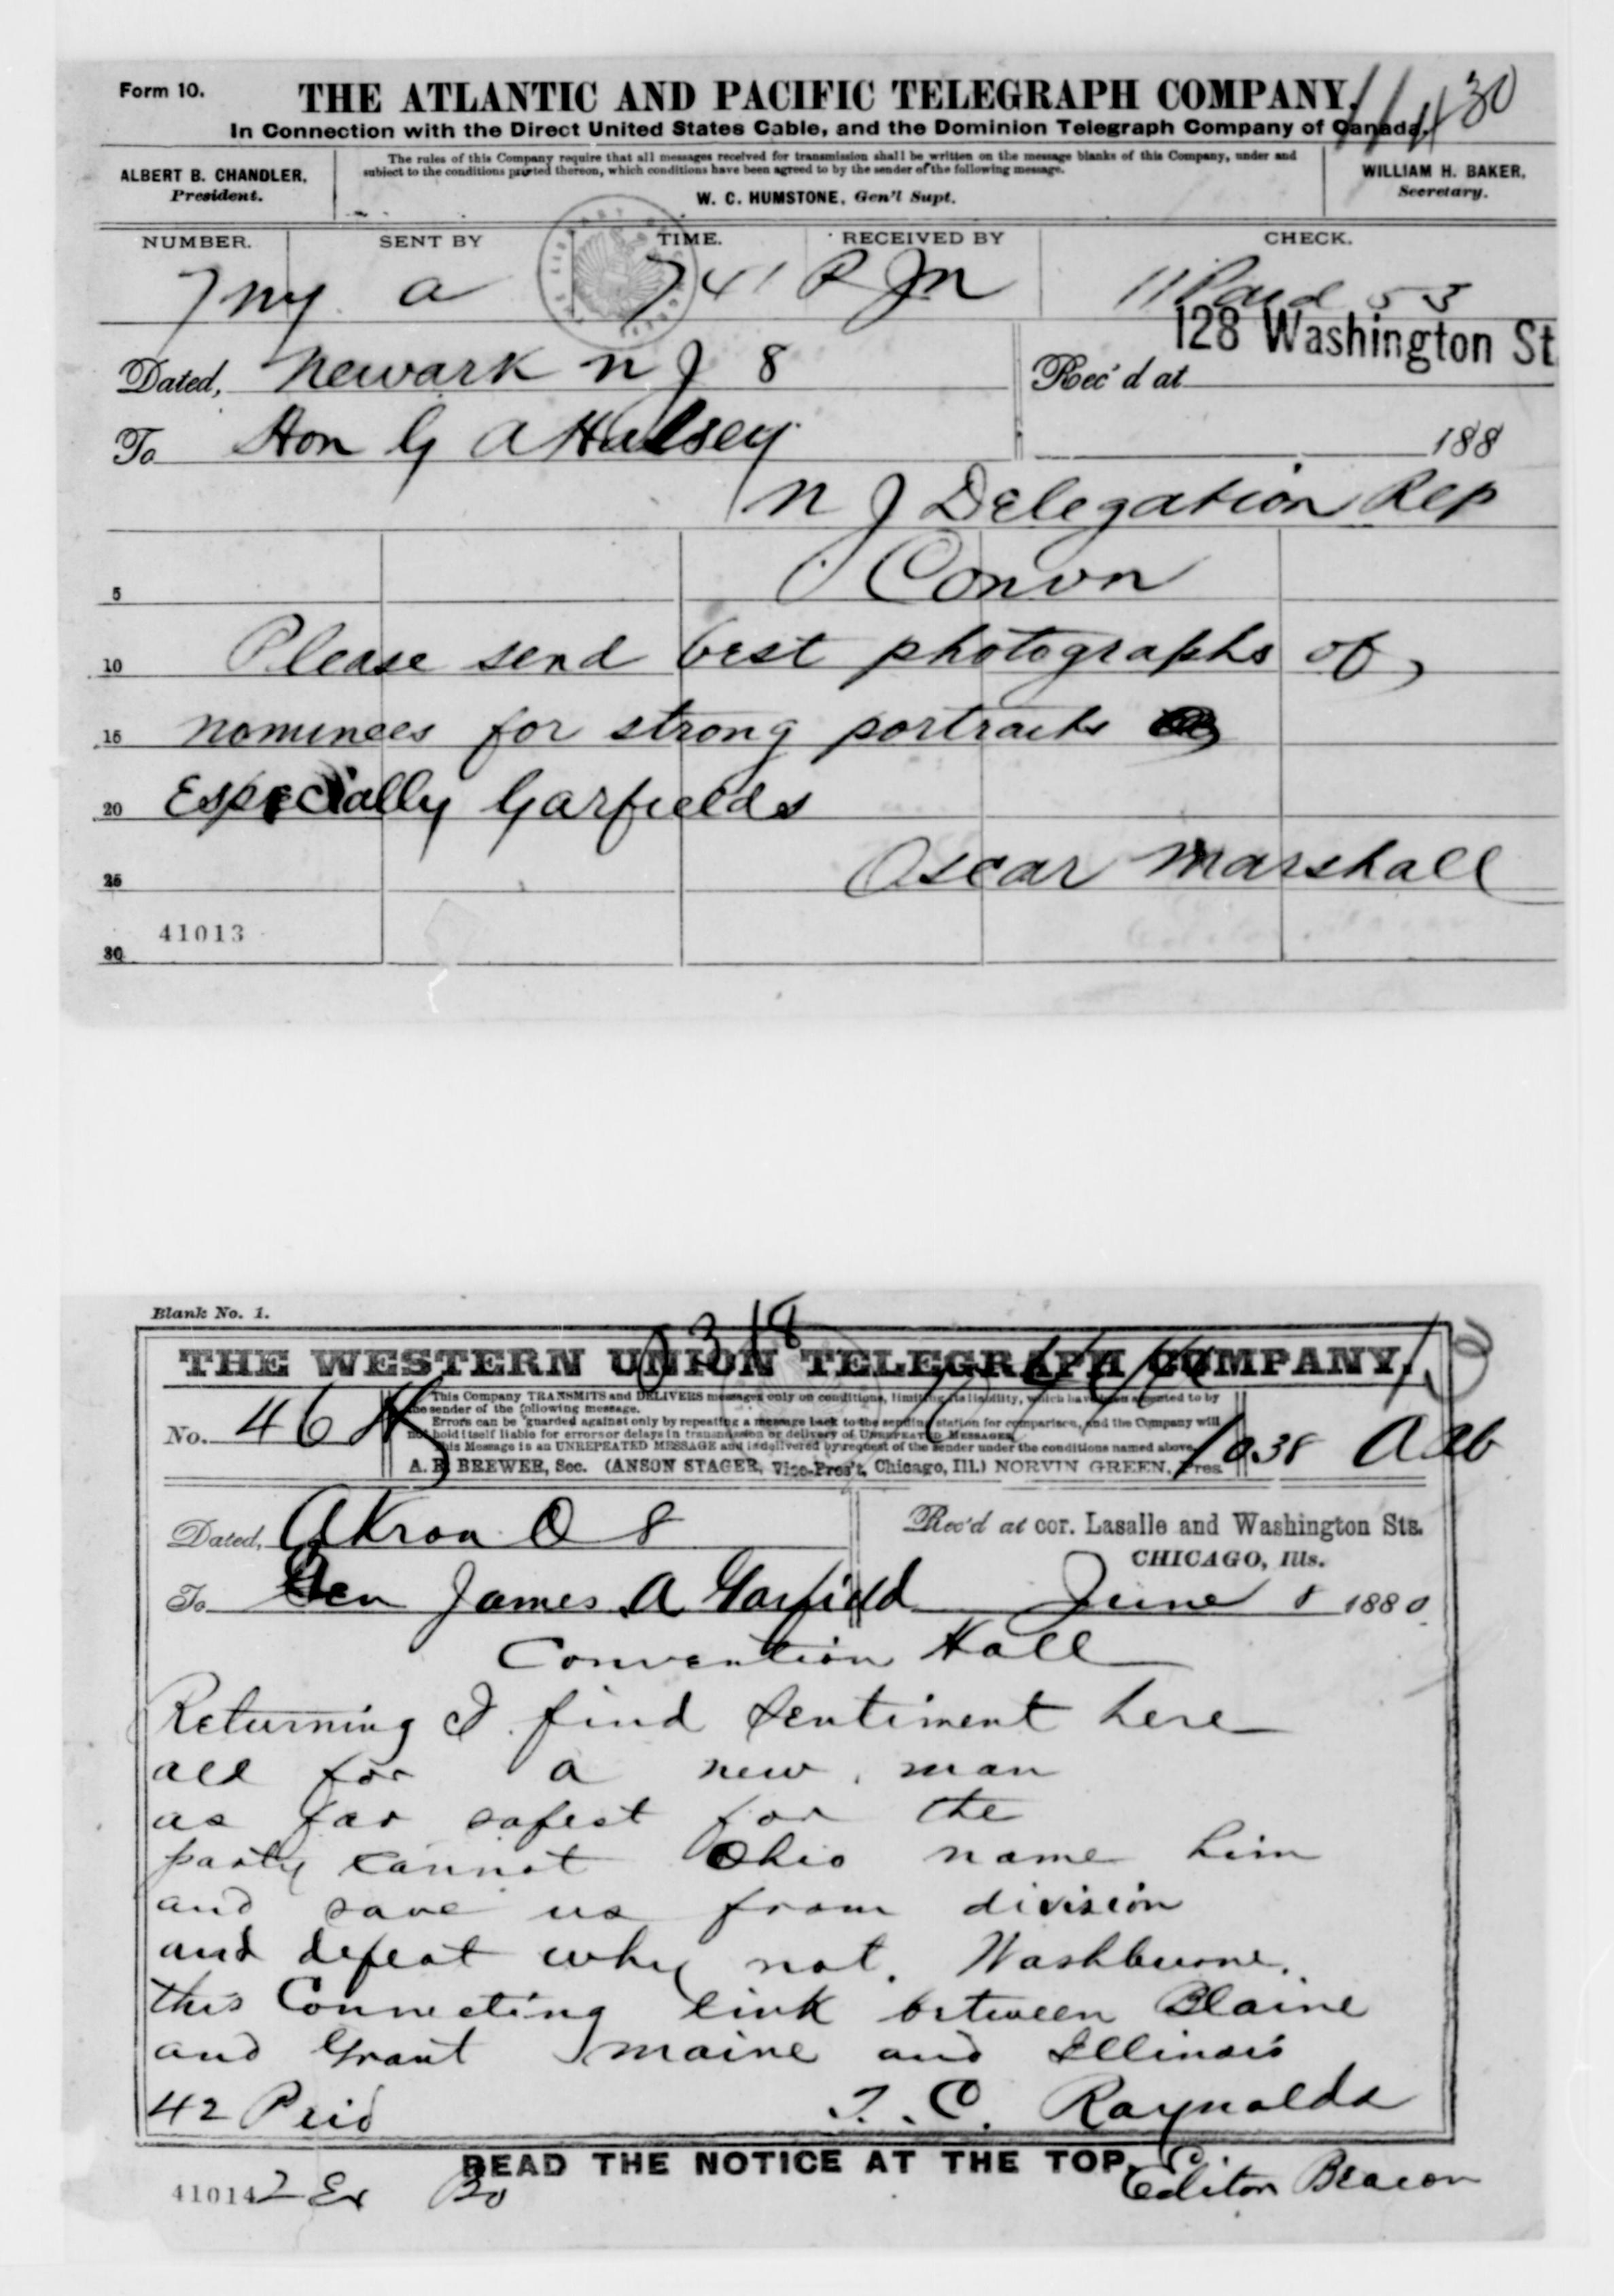 Form 10.
THE ATLANTIC AND PACIFIC TELEGRAPH COMPANY.
In Connection with the Direct United States Cable, and the Dominion Telegraph Company of Canada.
ALBERT B. CHANDLER, President.
The rules of this Company require that all messages received for transmission shall be written on the message blanks of this Company, under and
subject to the conditions printed thereon, which conditions have been agreed to by the sender of the following message.
W. C. HUMSTONE, Gen'l Supt.
WILLIAM H. BAKER, Secretary.
NUMBER. SENT BY TIME. RECEIVED BY CHECK.
7 ny a 741 P Jm 11 Paid 53
128 Washington St
Dated, Newark N J 8 Rec'd at
To Hon G A Halsey 188
N J Delegation Rep
5 Convn
10 Please send best photographs of
15 nominees for strong portraits
20 Especially Garfields
25 Oscar Marshall
41013
30
Blank No. 1.
THE WESTERN UNION TELEGRAPH COMPANY.
This Company TRANSMITS and DELIVERS messages only on conditions, limiting its liability, which have been assented to by
the sender of the following message.
Errors can be guarded against only by repeating a message back to the sending station for comparison, and the Company will
not hold itself liable for errors or delays in transmission or delivery of UNREPEATED MESSAGES
This Message is an UNREPEATED MESSAGE and is delivered by request of the sender under the conditions named above.
No. 46 1038
A. R. BREWER, Sec. (ANSON STAGER, Vice-Pres't, Chicago, Ill.) NORVIN GREEN, Pres.
Dated, Akron O 8 Rec'd at cor. Lasalle and Washington Sts.
CHICAGO, Ills.
To Gen James A Garfield June 8 1880
Convention Hall
Returning I find sentiment here
all for a new man
as far safest for the
party cannot Ohio name him
and save us from division
and defeat why not Washburne.
this Connecting link between Blaine
and Grant Maine and Illinois
42 Paid T. C. Raynolds
READ THE NOTICE AT THE TOP.
41014 2 Ex Editor Beacon